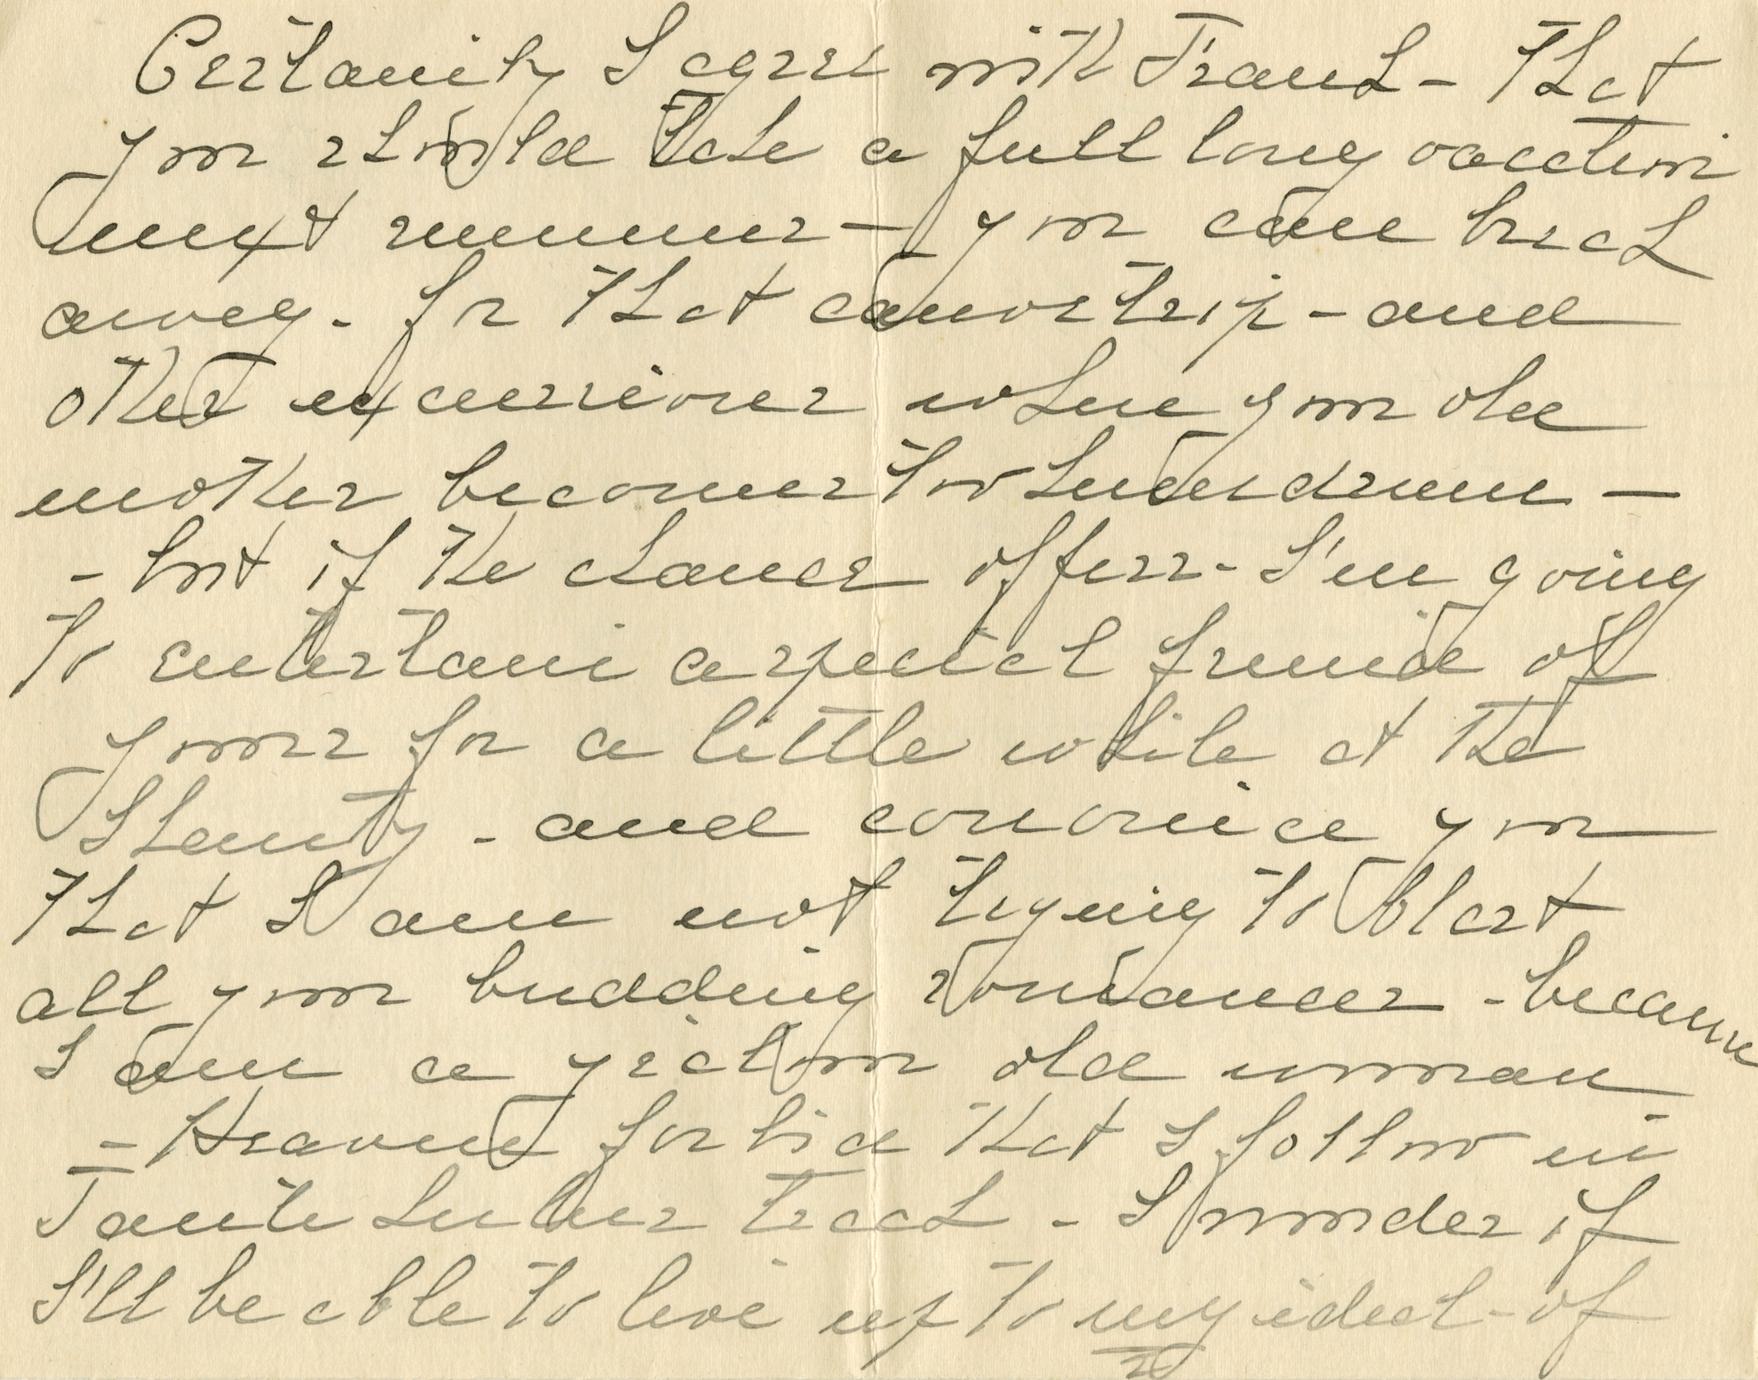 Certainly I agree with Frank - that
you should take a full long vacation
next summer - you can break
away - for that canoe trip - and
other excursions when your old
mother becomes too humdrum -
- but if the chance offers - I'm going
to entertain a special friend of
yours for a little while at the
Shanty - and convince you
that I am not trying to blast
all your budding romances - because
I am a jealous old woman
- Heavens forbid that I follow in
Tante track - I wonder if
I'll be able to live up to my ideal - of